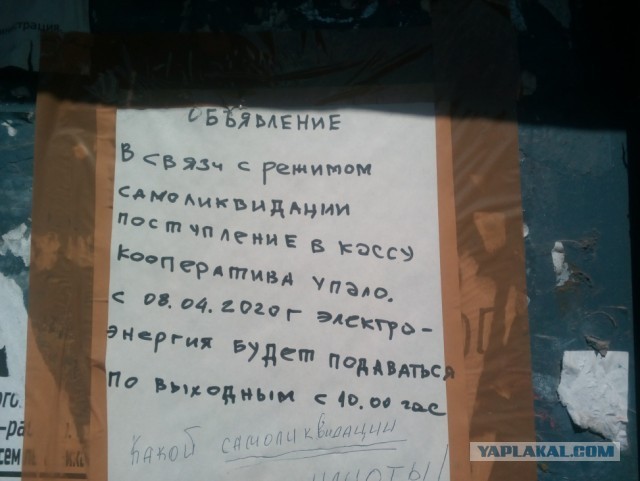 трация
ОБЪЯВЛЕНИЕ
В СВЯЗИ С РЕЖИМОМ
САМОЛИКВИДАЦИИ
ПОСТУПЛЕНИЕ В КАССУ
КООПЕРАТИВА УПАЛО.
С 08.04.2020г ЭЛЕКТРО-
ЭНЕРГИЯ БУДЕТ ПОДАВАТЬСЯ
ПО ВЫХОДНЫМ С 10.00 час
КАКОЙ САМОЛИКВИДАЦИИ
YAPLAKAL.COM